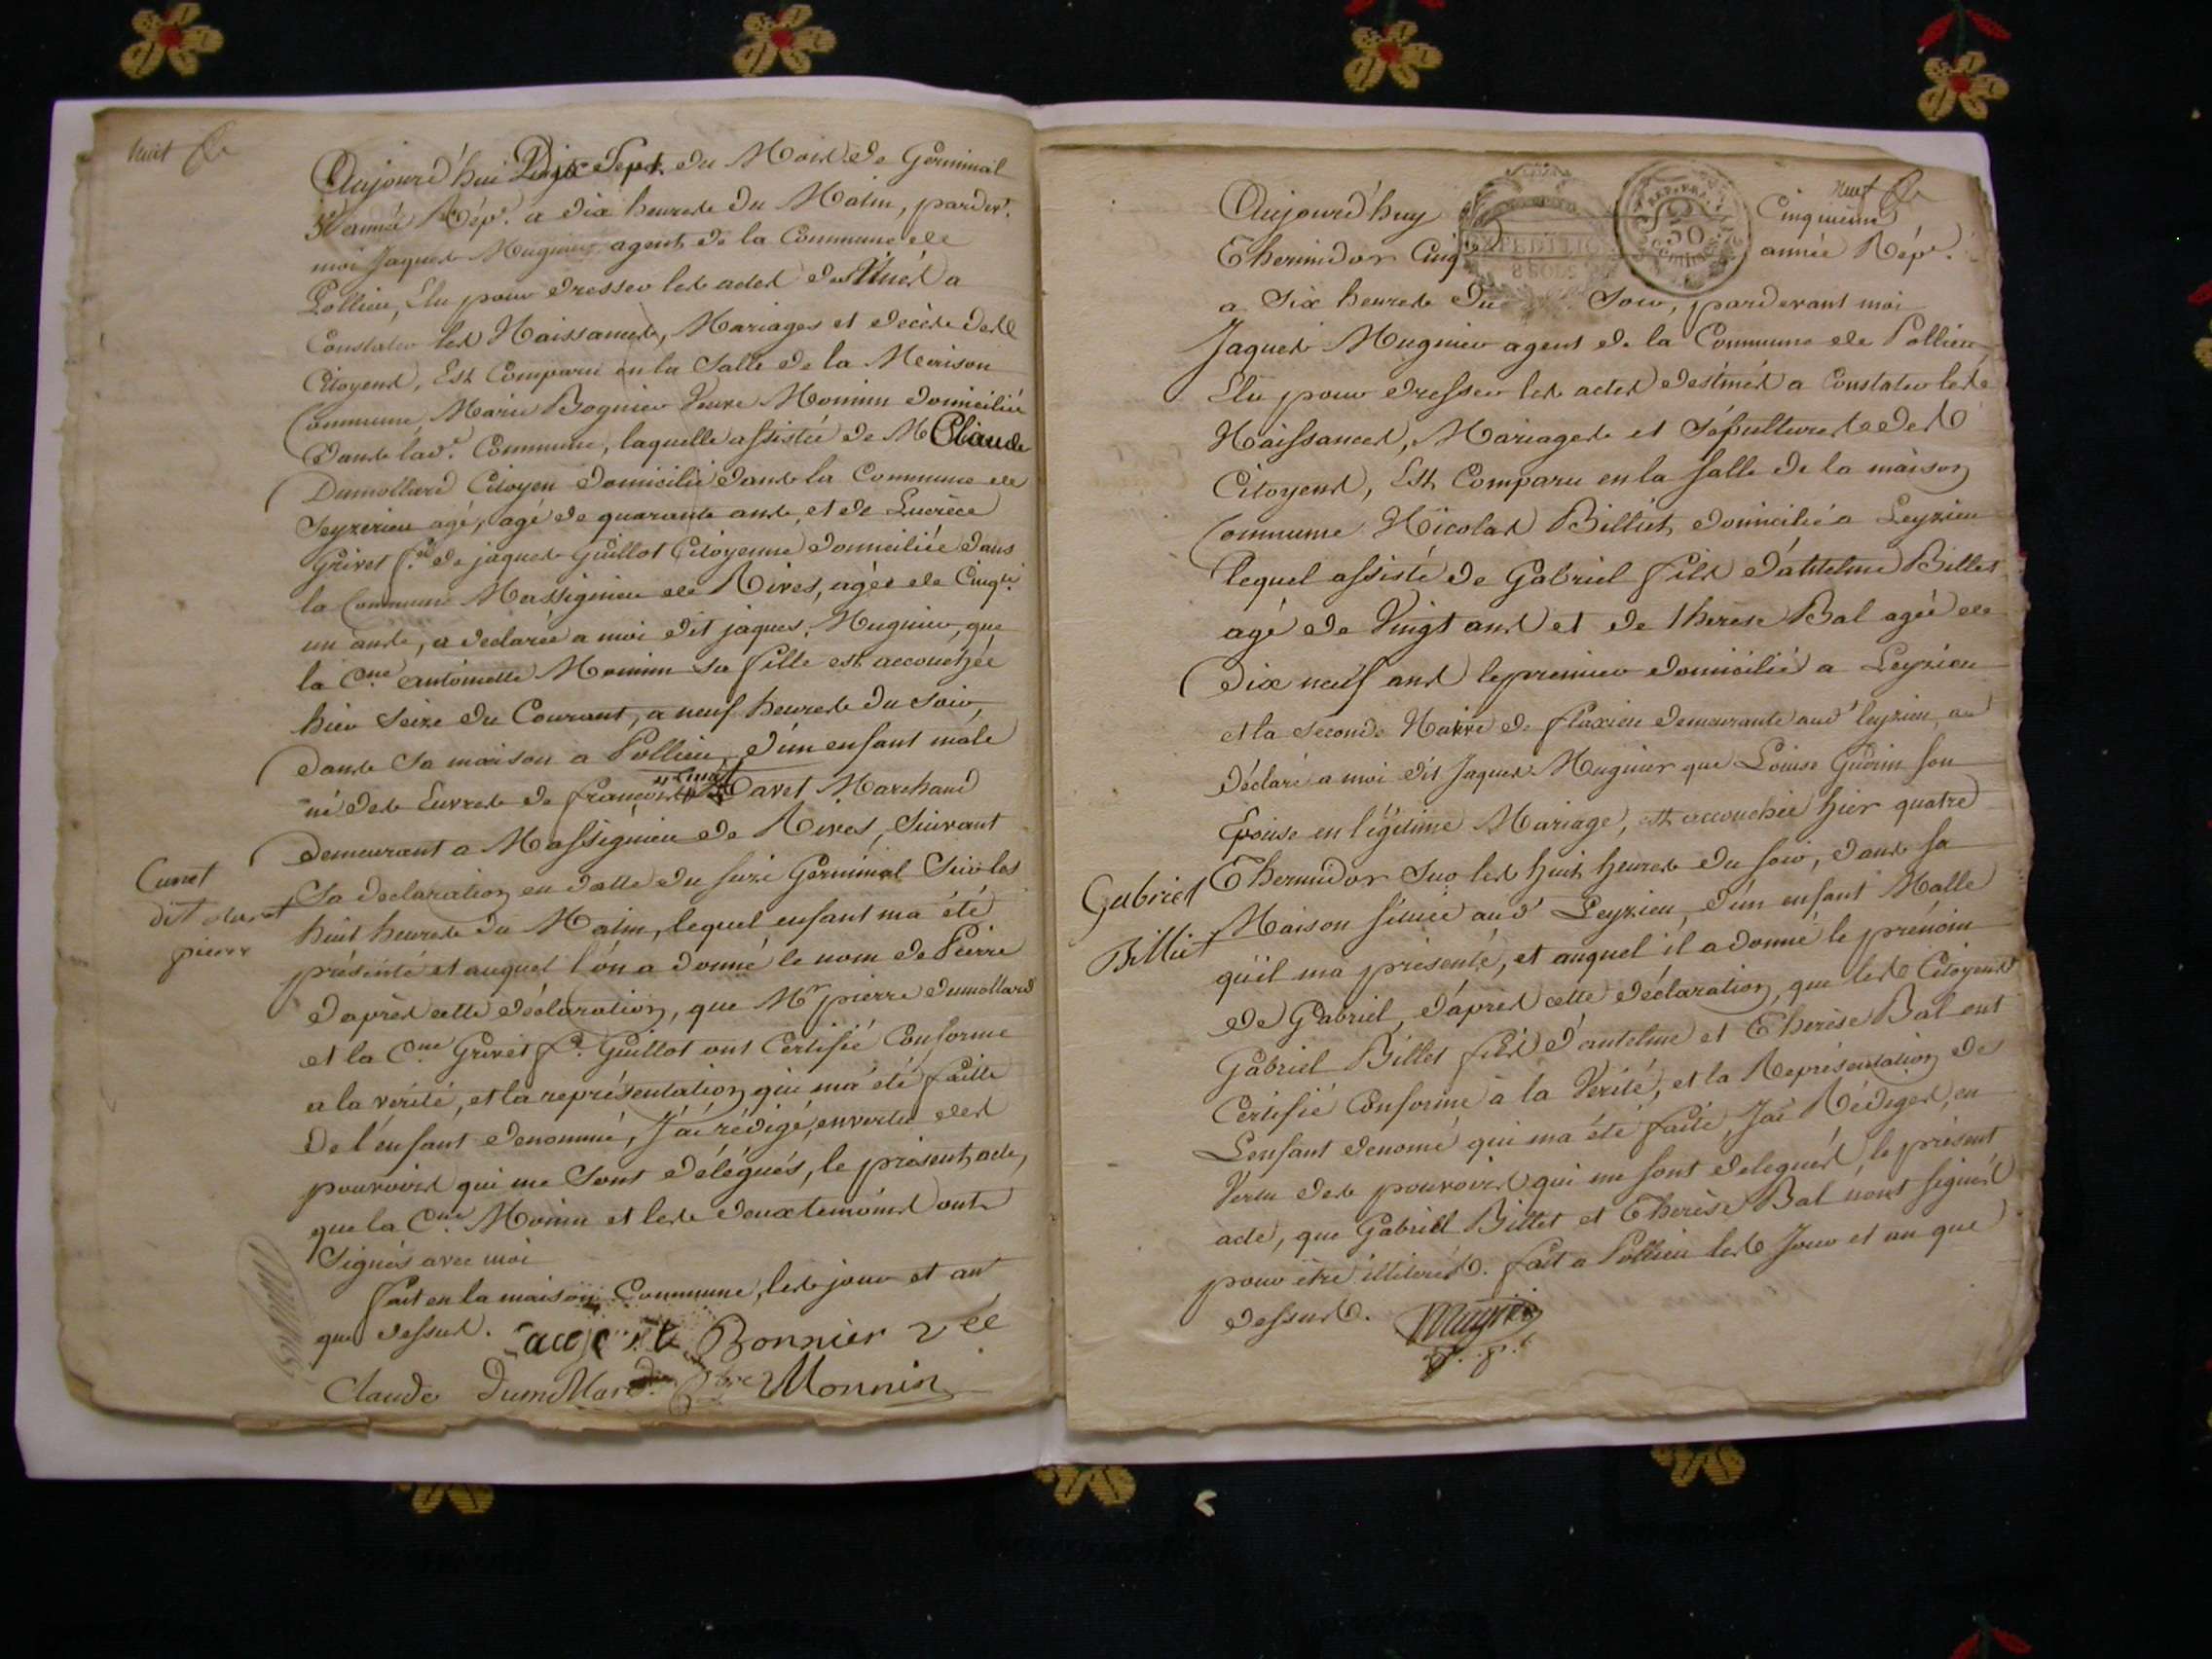 huit
Aujourd'hui Dix Sept du Mois de Germinal
5e année Rép.e a dix heures du Matin, pardevt.
moi Jaques Mugnier agent de la Commune de
Pollieu, Elu pour dresser les actes destinés a
Constater les Naissances, Mariages et décès des
Citoyens, Est Comparu en la Salle de la Maison
Commune, Marie Bognier Veuve Monnin domiciliée
dans lad.e Commune, laquelle assistée de M Claude
Dumollard Citoyen domicilié dans la Commune de
Seyzerieu agé, agé de quarante ans, et de Lucrèce
Grivet f.e de jaques Guillot Citoyenne domiciliée dans
la Commune Massignieu de Rives, agée de Cinqte.
un ans, a declarée a moi dit jaques Mugnier, que
la C.ne antoinette Monnin sa fille est accouchée
hier seize du Courant, a neuf heures du soir,
dans sa maison a Pollieu, d'un enfant mâle
né des Euvres de françois Davet Marchand
demeurant a Massignieu de Rives, Suivant
Sa declaration en datte du seize Germinal Sur les
huit heures du Matin, lequel enfant ma été
présenté et auquel l'on a donné le nom de Pierre
d'après cette déclaration, que Mr pierre dumollard
et la C.ne Grivet f.e Guillot ont Certifié Conforme
a la vérité, et la représentation qui ma été faitte
de l'enfant denommé, J'ai rédigé, en vertu des
pouvoirs qui me Sont délégués, le présent acte,
que la C.ne Monin et les deux temoins ont
Signés avec moi
fait en la maison Commune, les jour et an
que dessus. Bonnier vee
Claude Dumollard. Monnin
Cunet
dit davet
pierre
neuf
Aujourd'huy Cinquieme
Thermidor Cinq année Rép.e
EXPEDITION
8 SOLS
REP. FRA.
50
Centimes
a Six heures du Soir, pardevant moi
Jaques Mugnier agent de la Commune de Pollieu
Elu pour dresser les actes destinés a Constater les
Naissances, Mariages et Sépultures des
Citoyens, Est Comparu en la salle de la maison
Commune Nicolas Billiet domicilié a Leyzieu
lequel assisté de Gabriel fils d'antelme Billet
agé de Vingt ans et de therese Bal agée de
dix neuf ans le premier domicilié a Leyzieu
et la seconde Native de flaxieu demeurante aud' leyzieu, a
déclaré a moi dit Jaques Mugnier que Louise Guérin son
Epouse en légitime Mariage, est accouchée hier quatre
Thermidor Sur les huit heures du soir, dans sa
Maison située aud' Leyzieu, d'un enfant Malle
qu'il ma présenté, et auquel il a donné le prénom
de Gabriel, d'après cette déclaration, que les Citoyens
Gabriel Billet fils d'antelme et Therèse Bal ont
Certifié Conforme à la Vérité, et la Représentation de
L'enfant denomé qui ma été faite, J'ai Rédiger, en
Vertu des pouvoirs qui me sont delegués, le présent
acte, que Gabriel Billet et Therèse Bal n'ont signés
pour être illiterés. fait a Pollieu les Jour et an que
dessus. Mugnier
Gabriel
Billiet